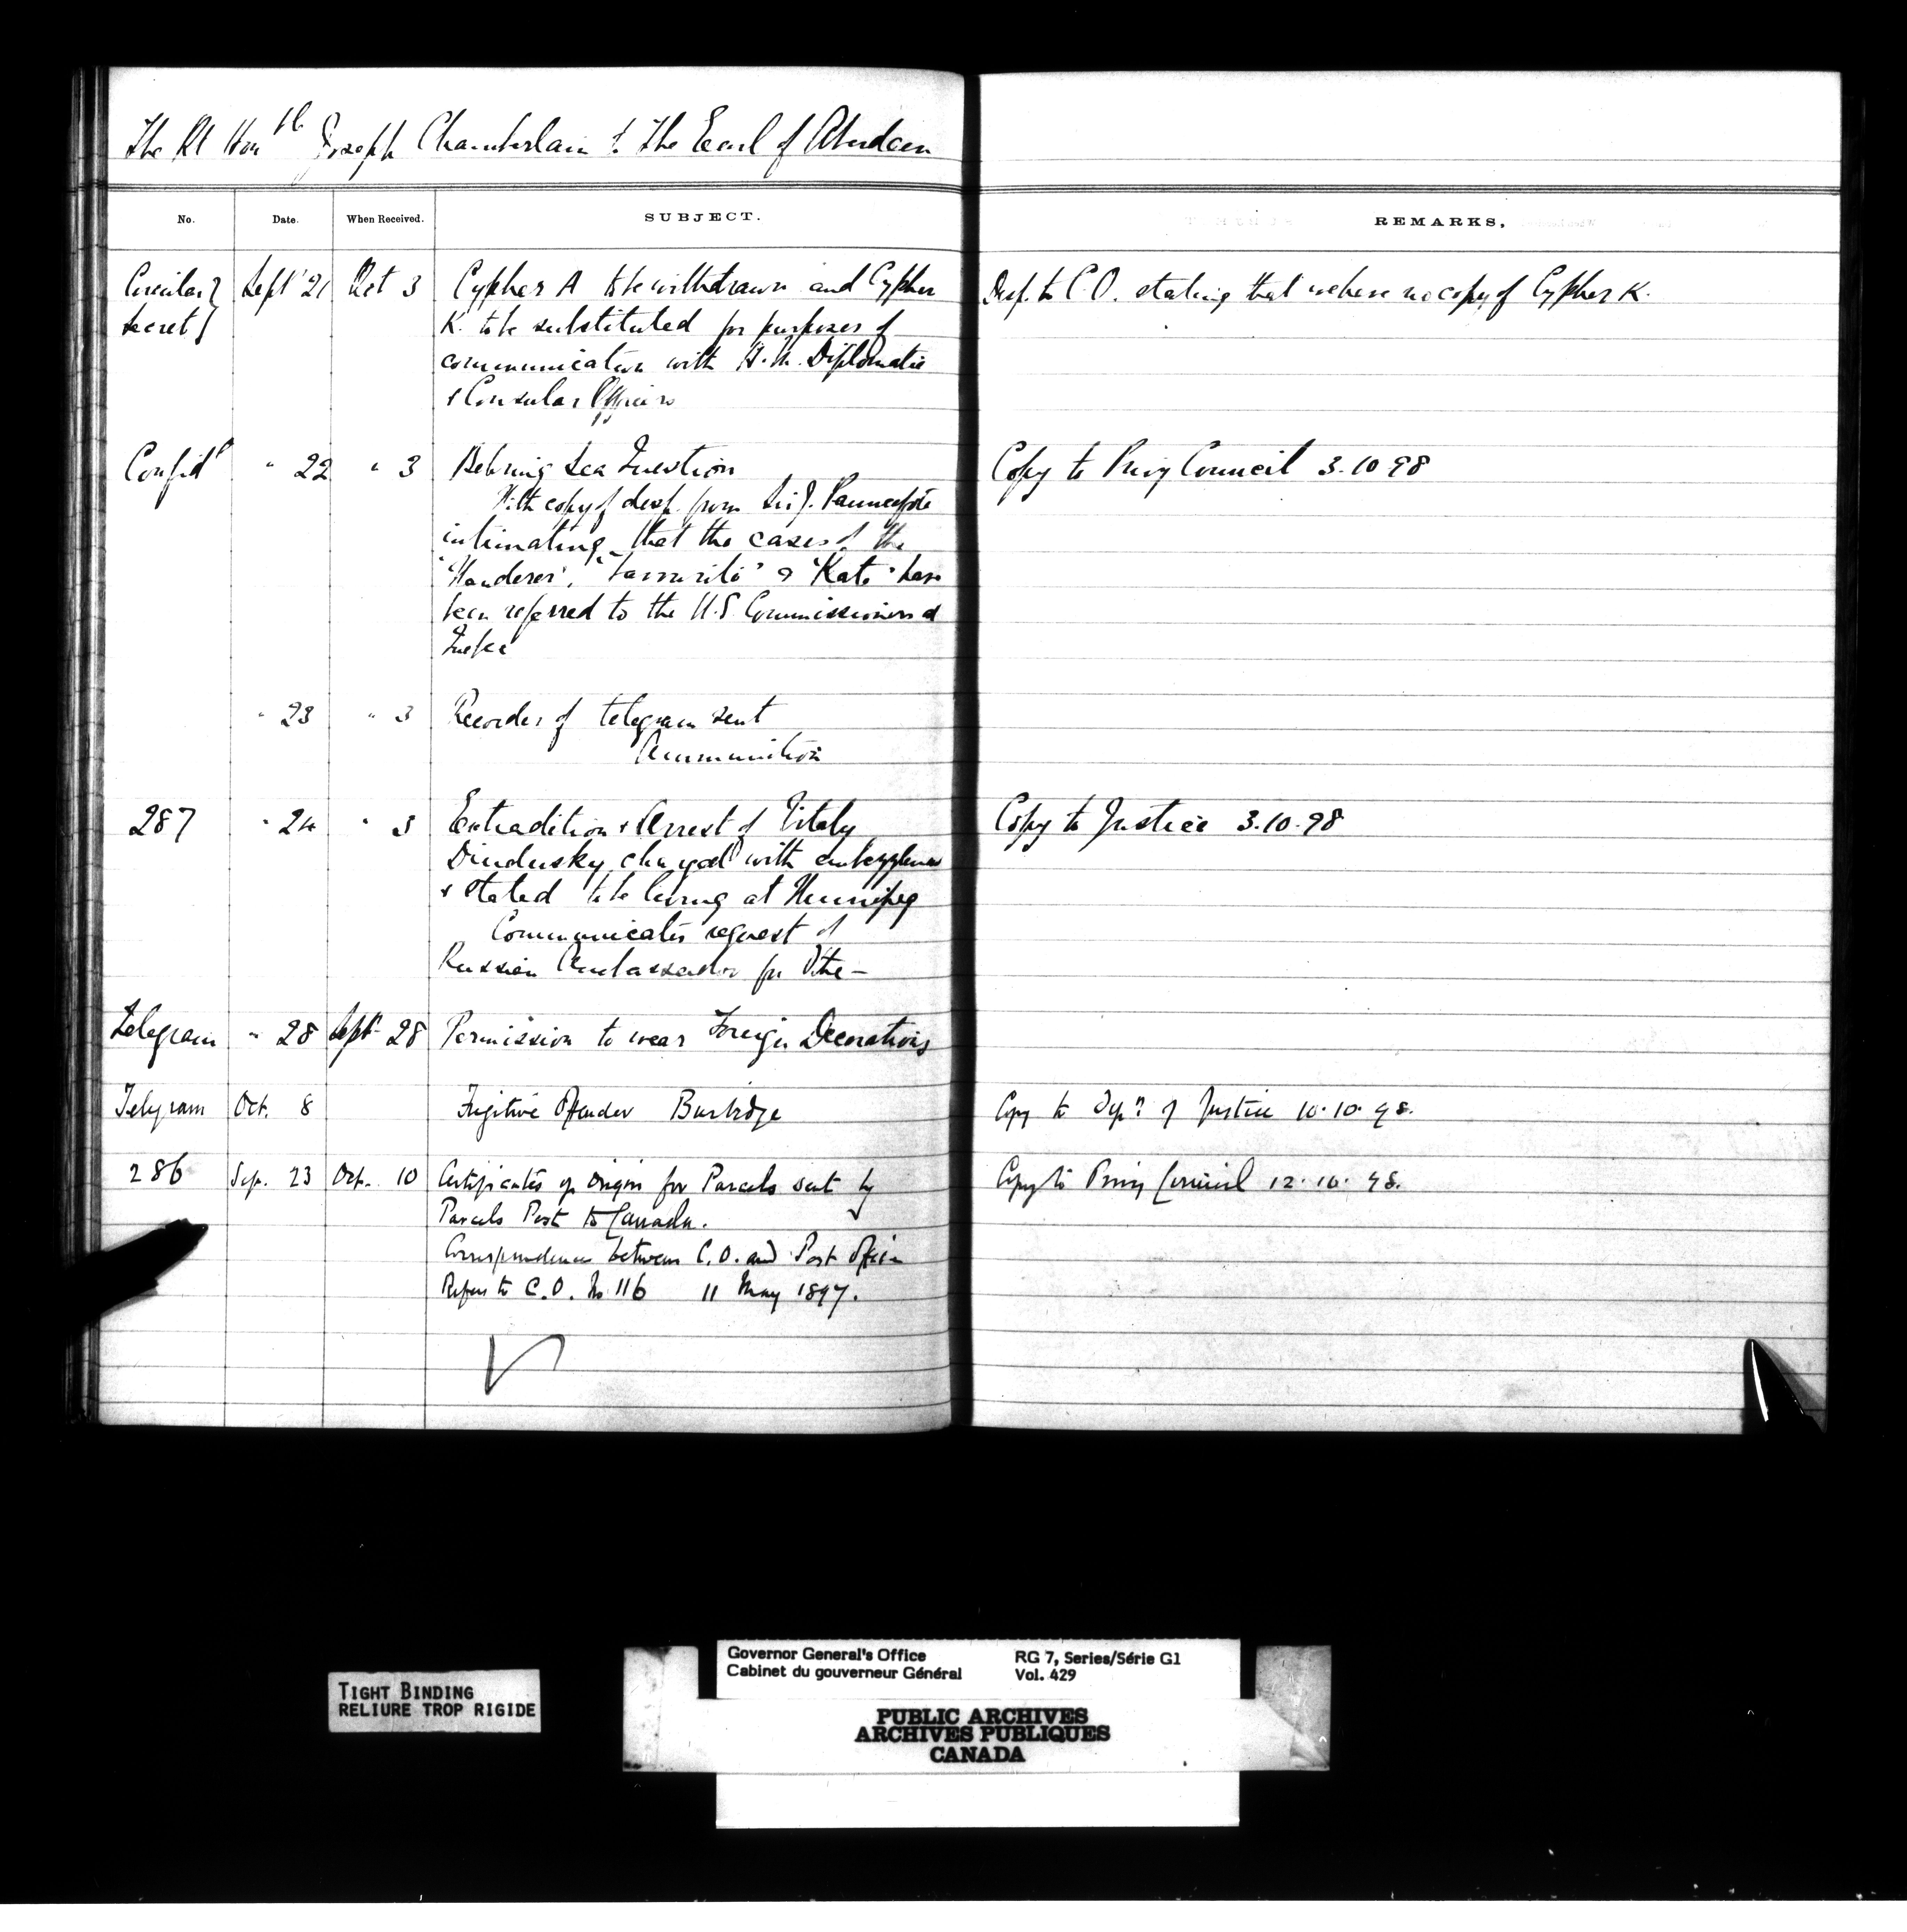 The Rt Honble Joseph Chamberlain to The Earl of Aberdeen
No. Date. When Received. SUBJECT. REMARKS.
Circular } Sept 21 Oct 3 Cypher A to be withdrawn and Cypher Desp. to C.O. stating that we have no copy of Cypher K.
Secret } K. to be substituted for purposes of
communication with H.M. Diplomatic
& Consular Officers
Confidl " 22 " 3 Behring Sea Question Copy to Privy Council 3.10.98
With copy of desp. from Sir J. Pauncefote
intimating that the cases of the
"Wanderer", "Favourite" & "Kate" have
been referred to the U.S. Commissioners at
" 23 " 3 Recorder of telegram sent
Ammunition
287 " 24 " 3 Extradition & Arrest of Vitaly Copy to Justice 3.10.98
charged with embezzlement
& stated to be living at Winnipeg
Communicates request of
Russian Ambassador for the -
Telegram " 28 Sept 28 Permission to wear Foreign Decorations
Telegram Oct. 8 Fugitive Offender Burbidge Copy to Dept of Justice 10.10.98.
286 Sep. 23 Oct. 10 Certificates of origin for Parcels sent by Copy to Privy Council 12.10.98.
Parcels Post to Canada.
Correspondence between C.O. and Post Office
Refers to C.O. No 116 11 May 1897.
TIGHT BINDING
RELIURE TROP RIGIDE
Governor General's Office RG 7, Series/Série G1
Cabinet du gouverneur Général Vol. 429
PUBLIC ARCHIVES
ARCHIVES PUBLIQUES
CANADA